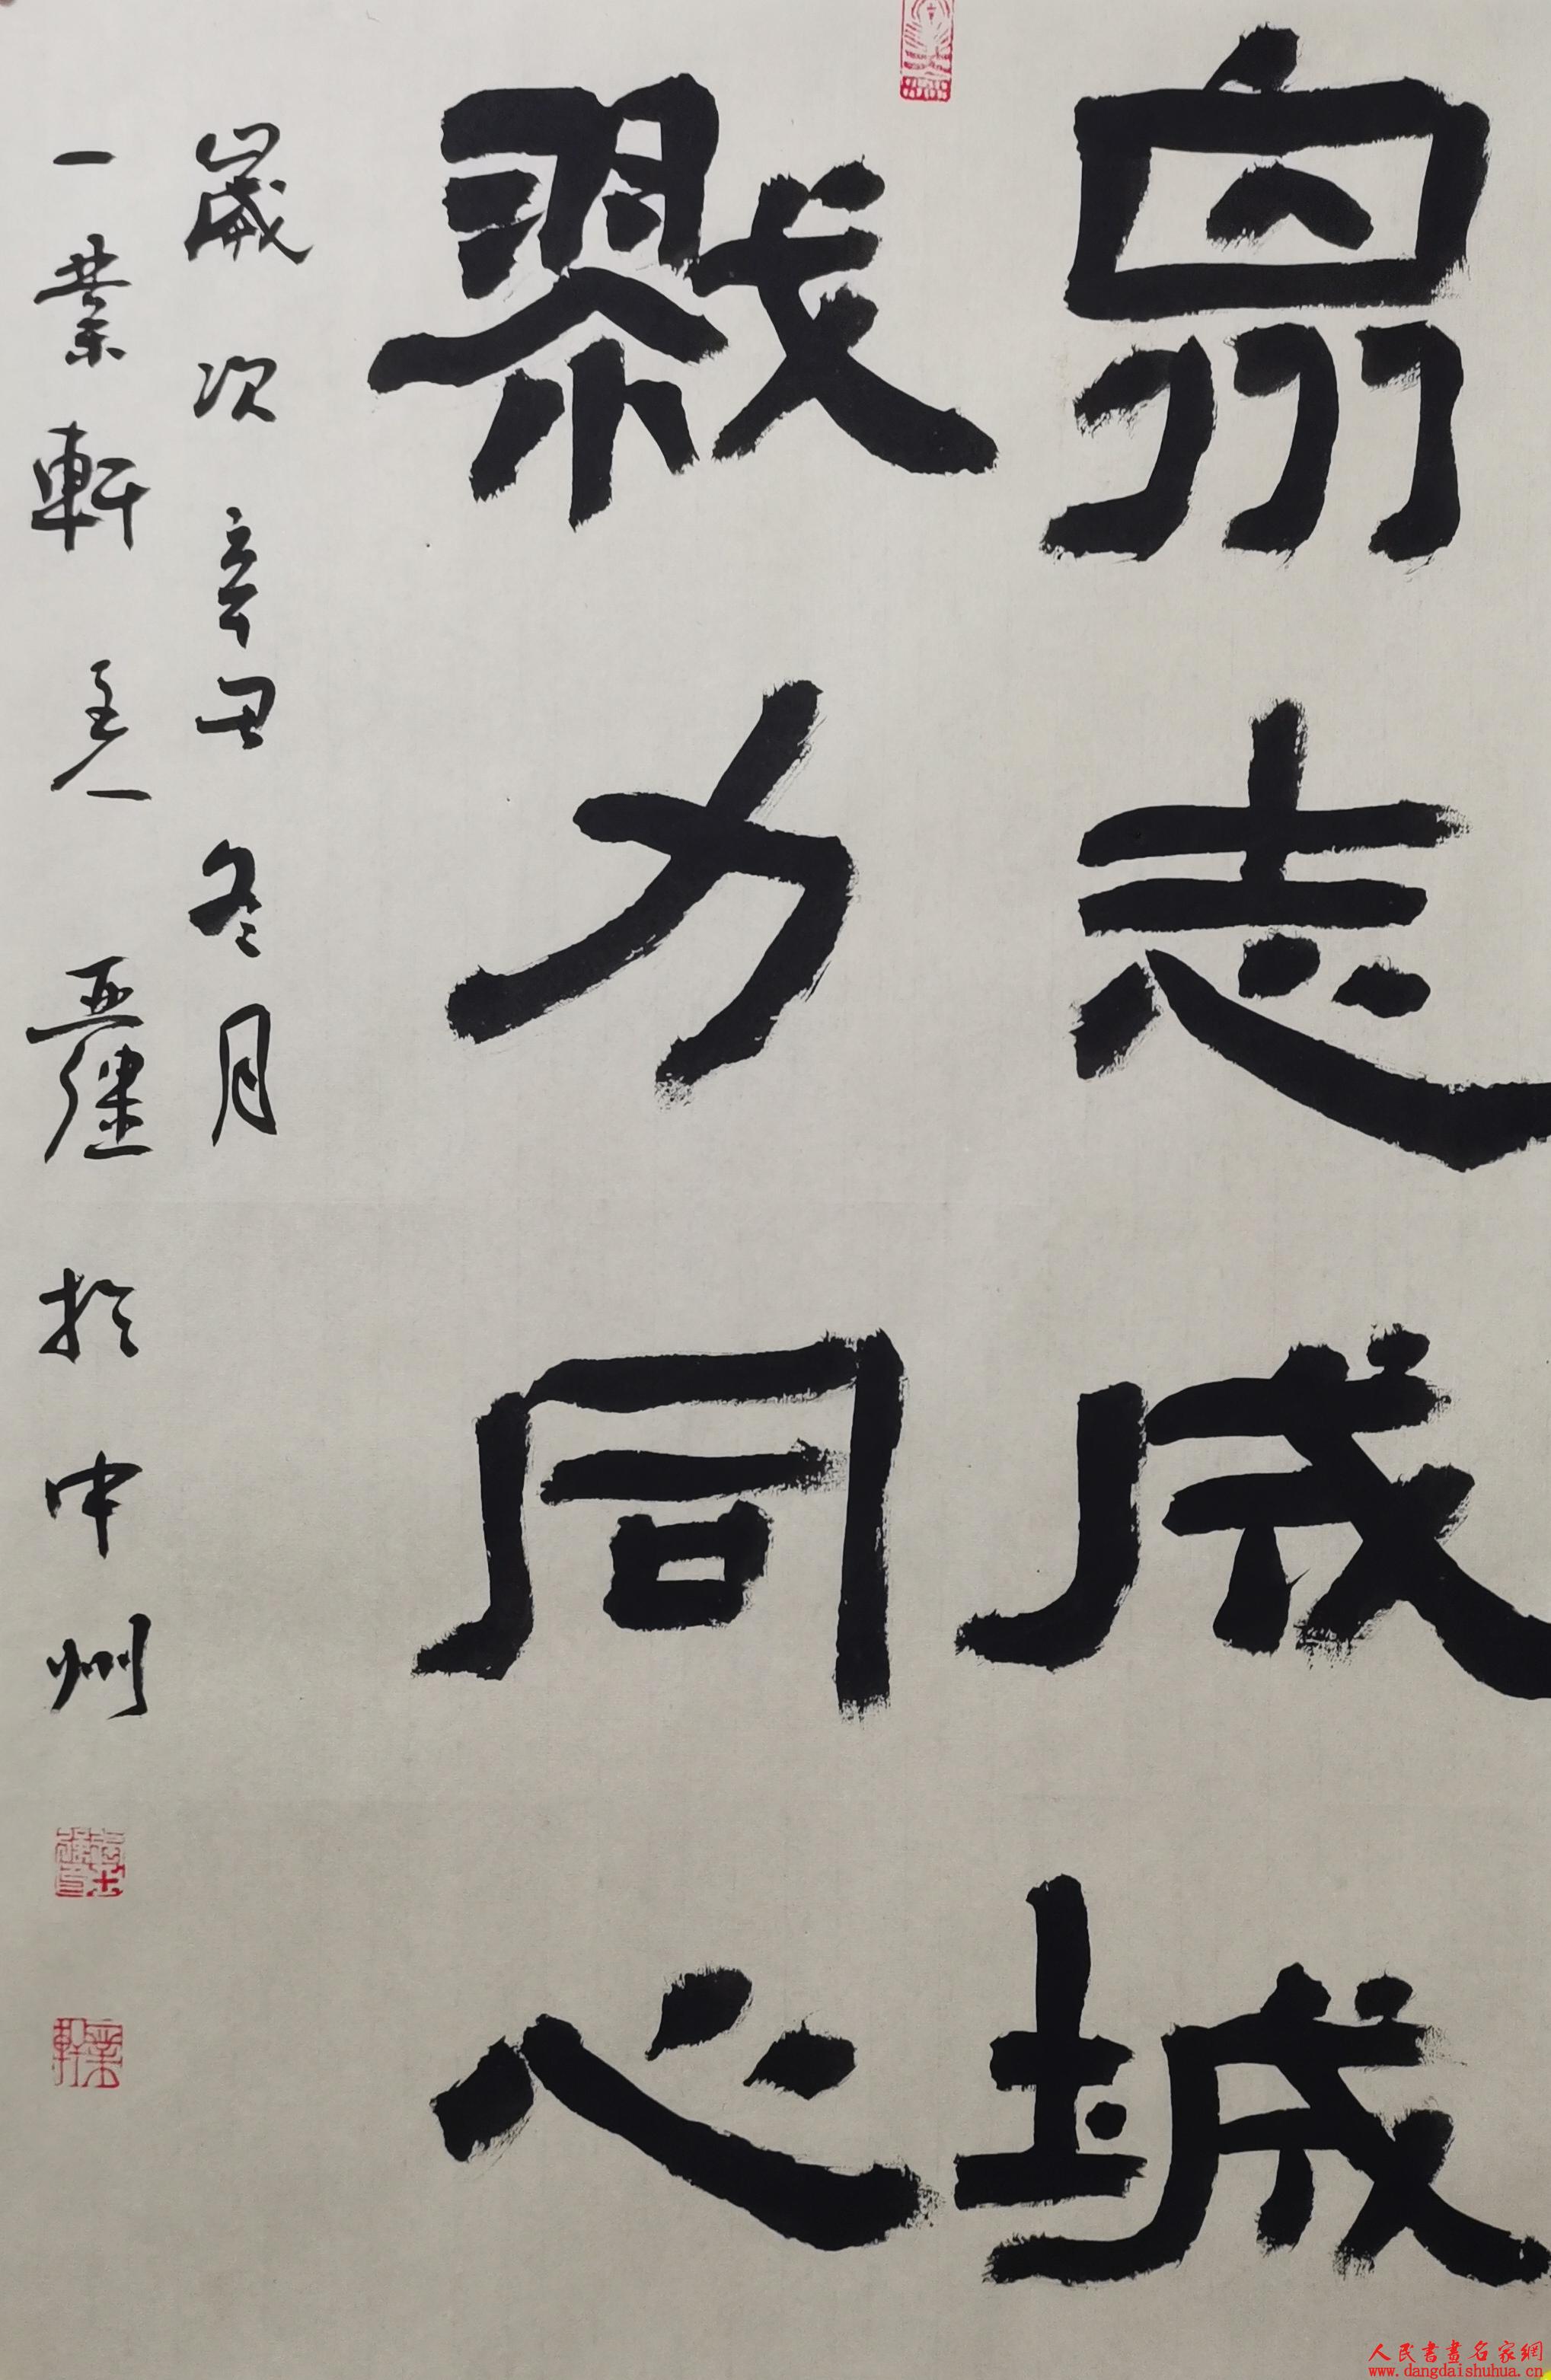 眾志成城
戮力同心
歲次辛丑冬月
一業軒主人 於中州
一業軒
人民書畫名家網
www.dangdaishuhua.cn